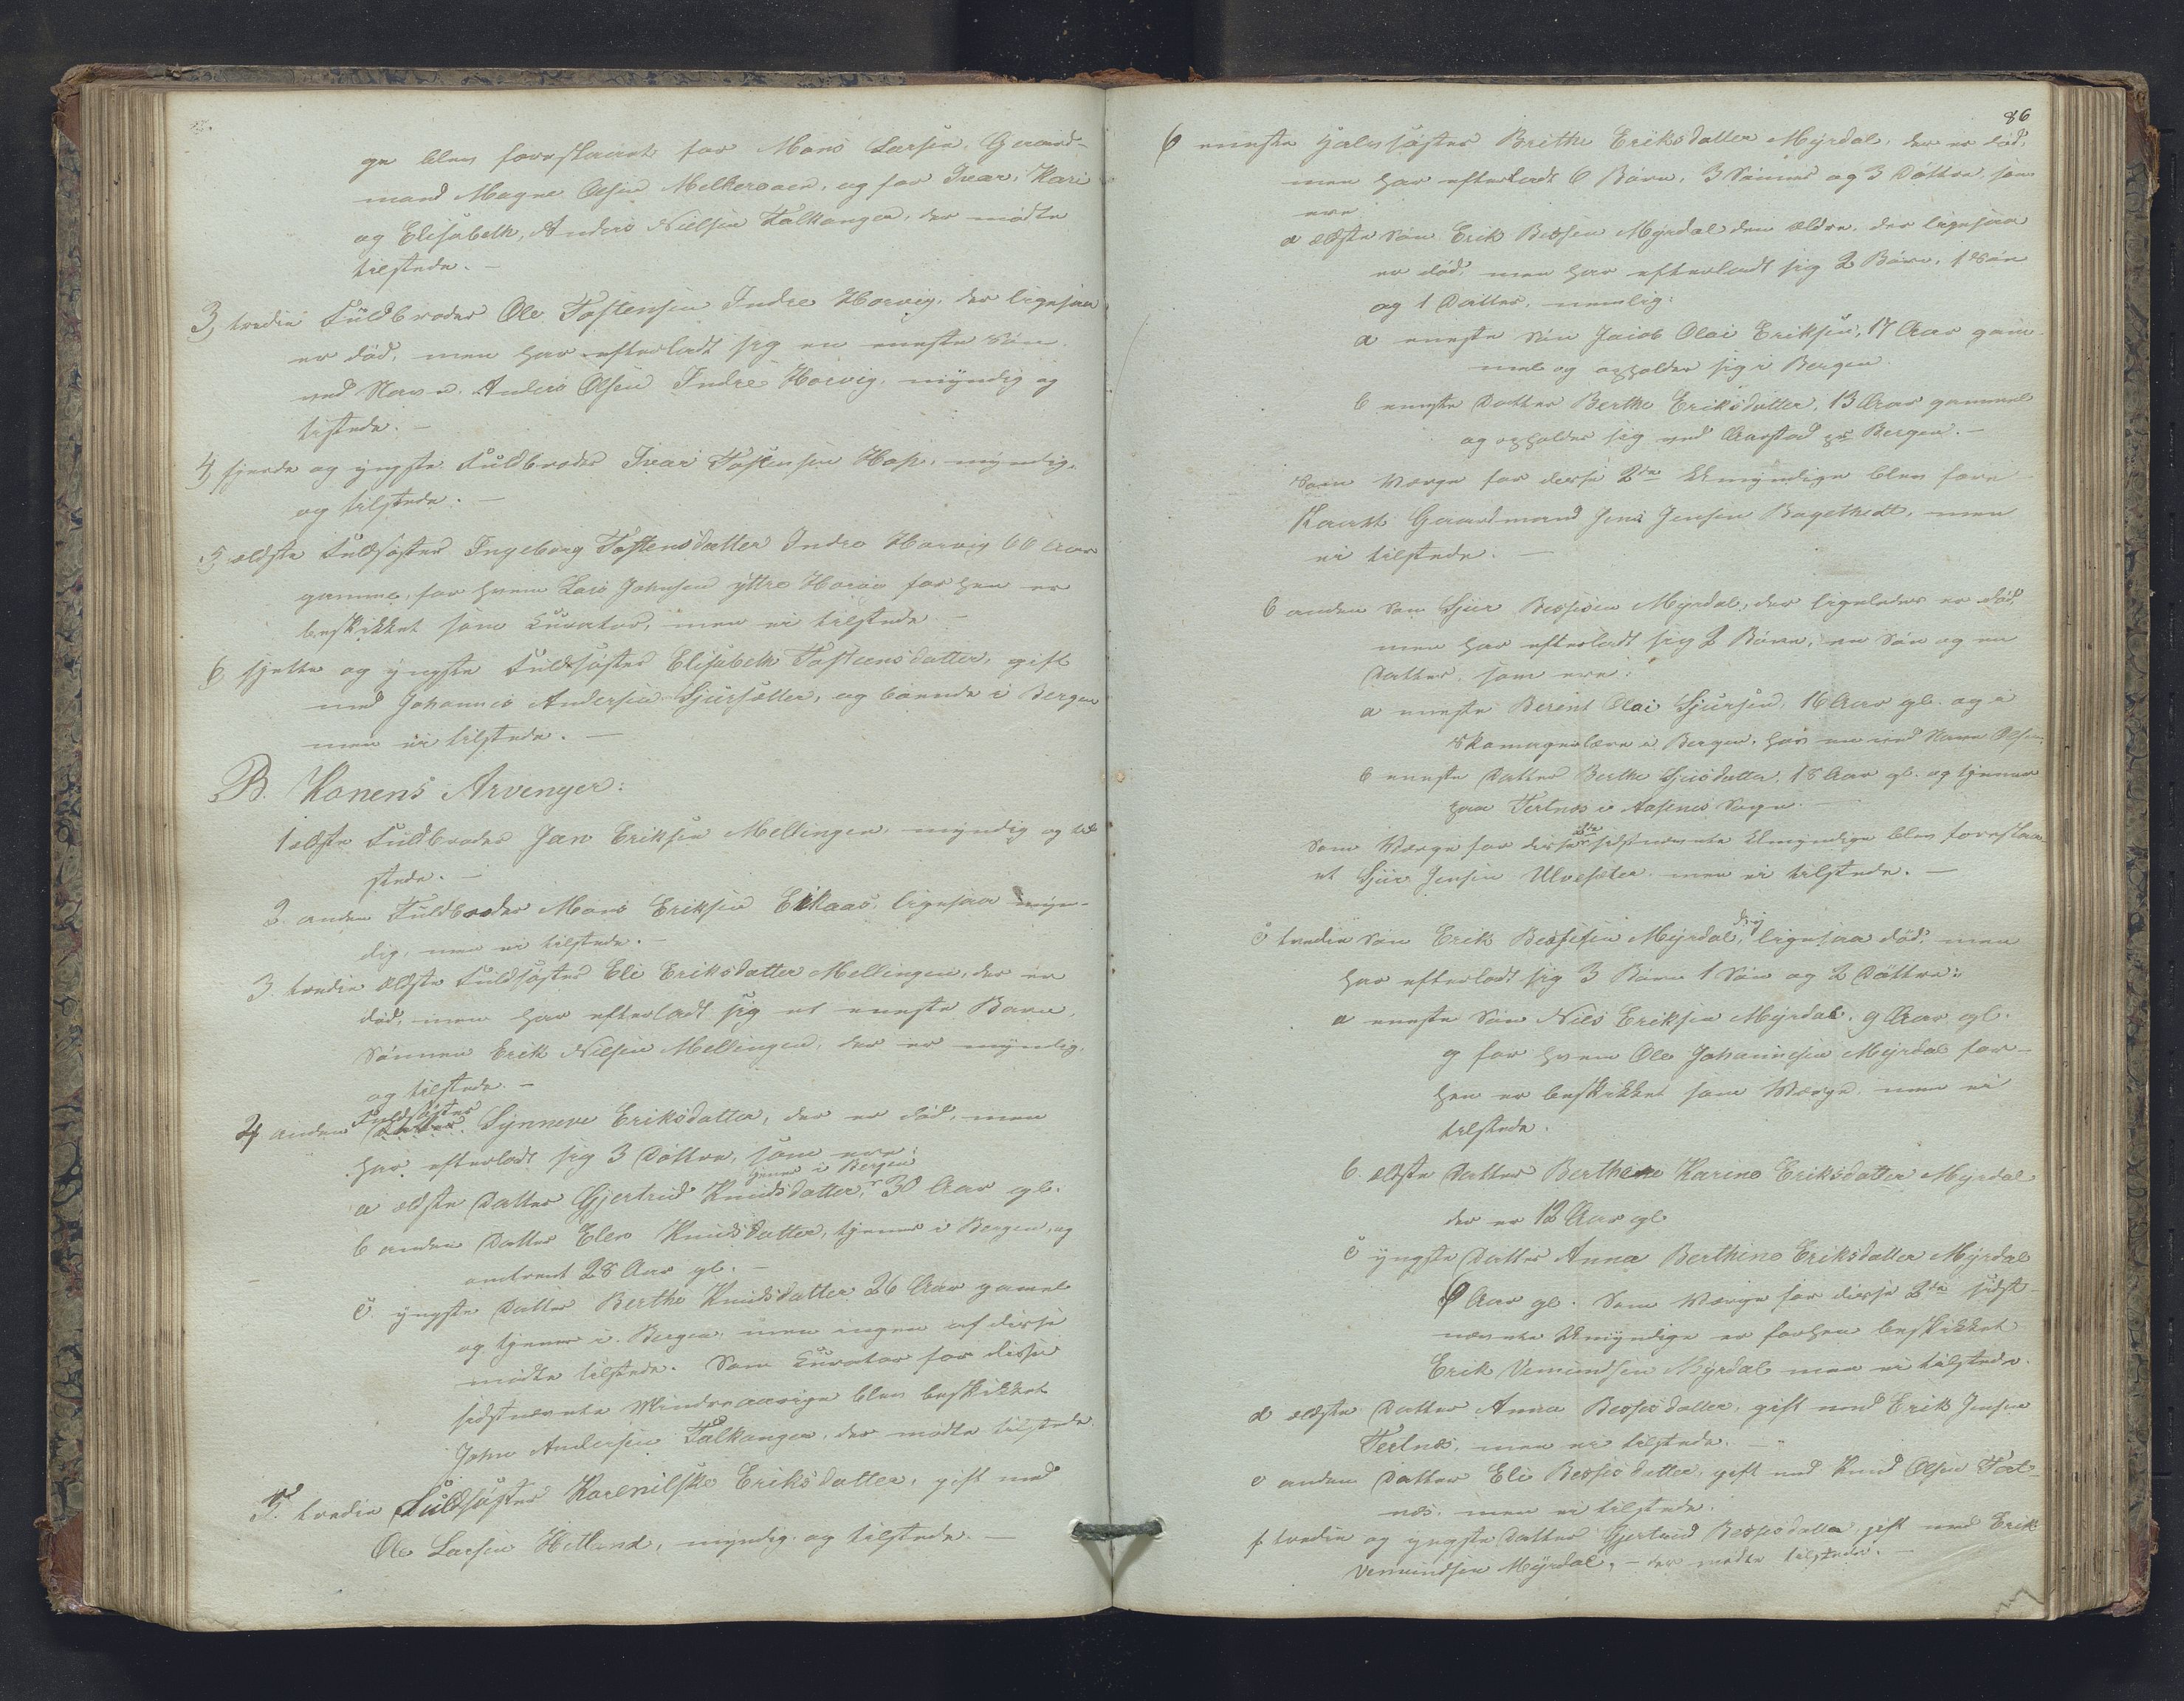 ge blev foreslaaet for Mons Larsen, Gaard-
mand Magne Olsen Melkeraaen, og for Ivar, Kari
og Elisabeth, Anders Nielsen Falkanger, der mødte
tilstede. —
3, tredie Fuldbroder Ole Tostensen Indre Horvig, der ligesaa
er død, men har efterladt sig en eneste Søn
ved Navn Anders Olsen Indre Horvig, myndig og
tilstede. —
4, fjerde og yngste Fuldbroder Ivar Tostensen Hop, myndig
og tilstede. —
5, ældste Fuldsøster Ingeborg Tostensdatter Indre Horvig 66 Aar
gammel, for hvem Lars Johnsen yttre Horvig forhen er
beskikket som Curator, men ei tilstede —
6, sjette og yngste Fuldsøster Elisabeth Tosteensdatter, gift
med Johannes Andersen Sjursætter, og boende i Bergen
men ei tilstede. —
B. Konens Arvinger:
1 ældste Fuldbroder Jan Eriksen Mellingen, myndig og til
stede. —
2 anden Fuldbroder Mons Eriksen Eikaas, ligesaa myn-
dig, men ei tilstede. —
3. tredie ældste Fuldsøster Eli Eriksdatter Mellingen, der er
død, men har efterladt sig et eneste Barn,
Sønnen Erik Nilsen Mellingen, der er myndig
og tilstede. —
Fuldsøster
4 anden Datter Synneve Eriksdatter, der er død, men
har efterladt sig 3 Døttre, som ere:
tjener i Bergen
a ældste Datter Gjertrud Knudsdatter, 30 Aar gl.
b anden Datter Elen Knudsdatter, tjener i Bergen, og
omtrent 28 Aar gl. —
c. yngste Datter Berthe Knudsdatter 26 Aar gamel
og tjener i Bergen, men ingen af disse
mødte tilstede. Som Curator for disse
sidstnævnte Mindreaarige blev beskikket
John Andersen Falkanger, der mødte tilstede.
5. tredie Fuldsøster Karenilske Eriksdatter, gift med
Ole Larsen Hetland, myndig og tilstede. —
86
6 eneste Halvsøster Brithe Eriksdatter Myrdal, der er død,
men har efterladt 6 Børn, 3 Sønner og 3 Døttre, som
ere
a ældste Søn Erik Bessen Myrdal den ældre, der ligesaa
er død, men har efterladt sig 2 Børn, 1 Søn
og 1 Datter, nemlig:
a eneste Søn Jacob Olai Eriksen, 17 Aar gam-
mel og opholder sig i Bergen.
b eneste Datter Berthe Eriksdatter, 13 Aar gammel
og opholder sig ved Aarstad pr Bergen. —
Som Værge for disse 2de Umyndige blev fore-
slaaet Gaardmand Jens Jensen Bagethedt, men
ei tilstede. —
b anden Søn Sjur Bessesen Myrdal, der ligeledes er død,
men har efterladt sig 2 Børn, en Søn og en
Datter, som ere:
a eneste Berent Olai Sjursen, 16 Aar gl. og i
Skomagerlære i Bergen, hos en ved Navn Olsen.
b eneste Datter Berthe Sjursdatter, 18 Aar gl. og tjener
paa Tertnes i Aasene Sogn. —
2de
Som Værge for disse sidstnævnte Umyndige blev foreslaa
et Sjur Jensen Ulvesæter men ei tilstede. —
d: y
c tredie Søn Erik Bessesen Myrdal, ligesaa død, men
har efterladt sig 3 Børn 1 Søn og 2 Døttre:
a eneste Søn Nils Eriksen Myrdal, 9 Aar gl.
og for hvem Ole Johannesen Myrdal for-
hen er beskikket som Værge men ei
tilstede.
b. ældste Datter Berthene Karine Eriksdatter Myrdal
der er 12 Aar gl.
c yngste Datter Anna Berthine Eriksdatter Myrdal
9 Aar gl. Som Værge for disse 2de sidst-
nævnte Umyndige er forhen beskikket
Erik Vemundsen Myrdal men ei tilstede.
d ældste Datter Anna Bessesdatter, gift med Erik Jensen
Tertnes, men ei tilstede. —
e anden Datter Eli Bessesdatter, gift med Knud Olsen Tert-
nes, men ei tilstede.
f tredie og yngste Datter Gjertrud Bessesdatter, gift med Erik
Vemundsen Myrdal, — der mødte tilstede. —